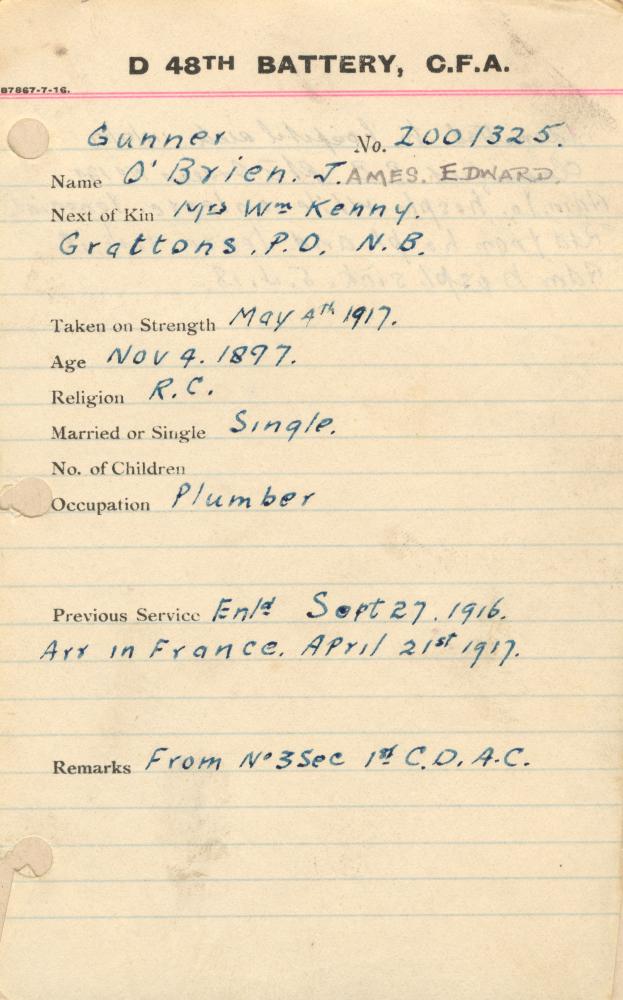 D 48TH BATTERY, C.F.A.
87867-7-16.
Gunner No. 2001325.
Name O'Brien. J.AMES. EDWARD.
Next of Kin Mrs Wm Kenny.
Grattons. P.O. N.B.
Taken on Strength May 4th 1917.
Age Nov 4. 1897.
Religion R.C.
Married or Single Single.
No. of Children
Occupation Plumber
Previous Service Enld Sept 27. 1916.
Arr in France. April 21st 1917.
Remarks From No 3 Sec 1st C.D.A.C.